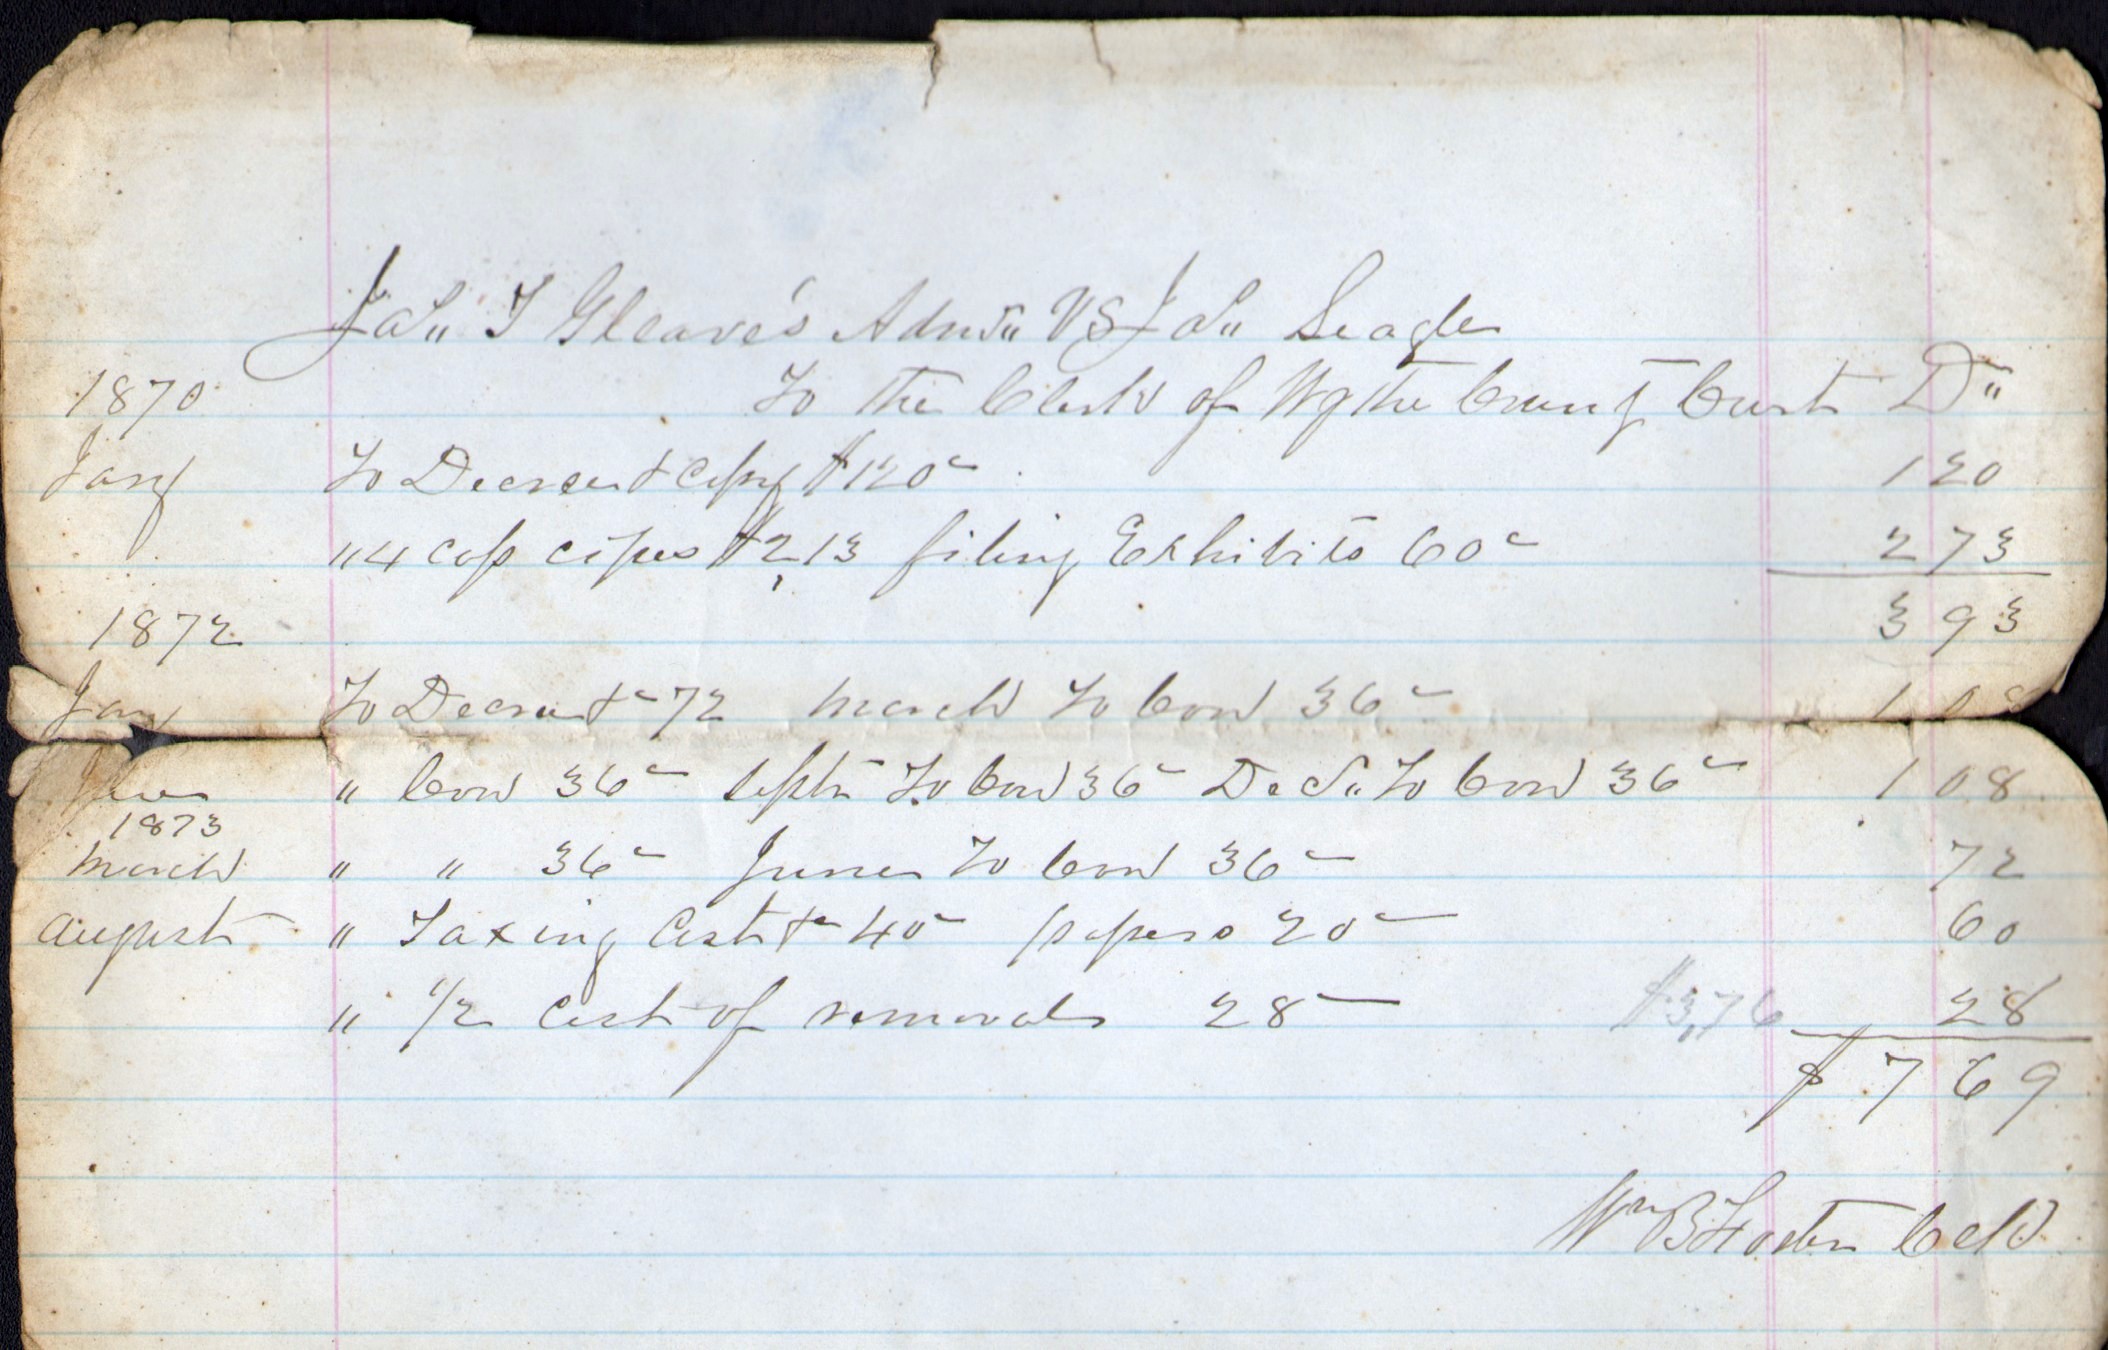 Jas" T Gleave's Admr" VS Jas" Seagle
1870 To the Clerk of Wythe County Court Dr"
Jany To Decree & Copy $120c 120
"4 cop $2,13 filing Exhibits 60c 273
1872 393
Jany To Decree 72 March To Con 36c 108
June " Con 36c Septr To Con 36c Decr" To Con 36c 108
1873
March " " 36c June To Con 36c 72
August " Taxing Cost 40c papers 20c 60
" 1/2 Cost of removal 28c $3,76 28
$ 769
Wm B Foster Clk